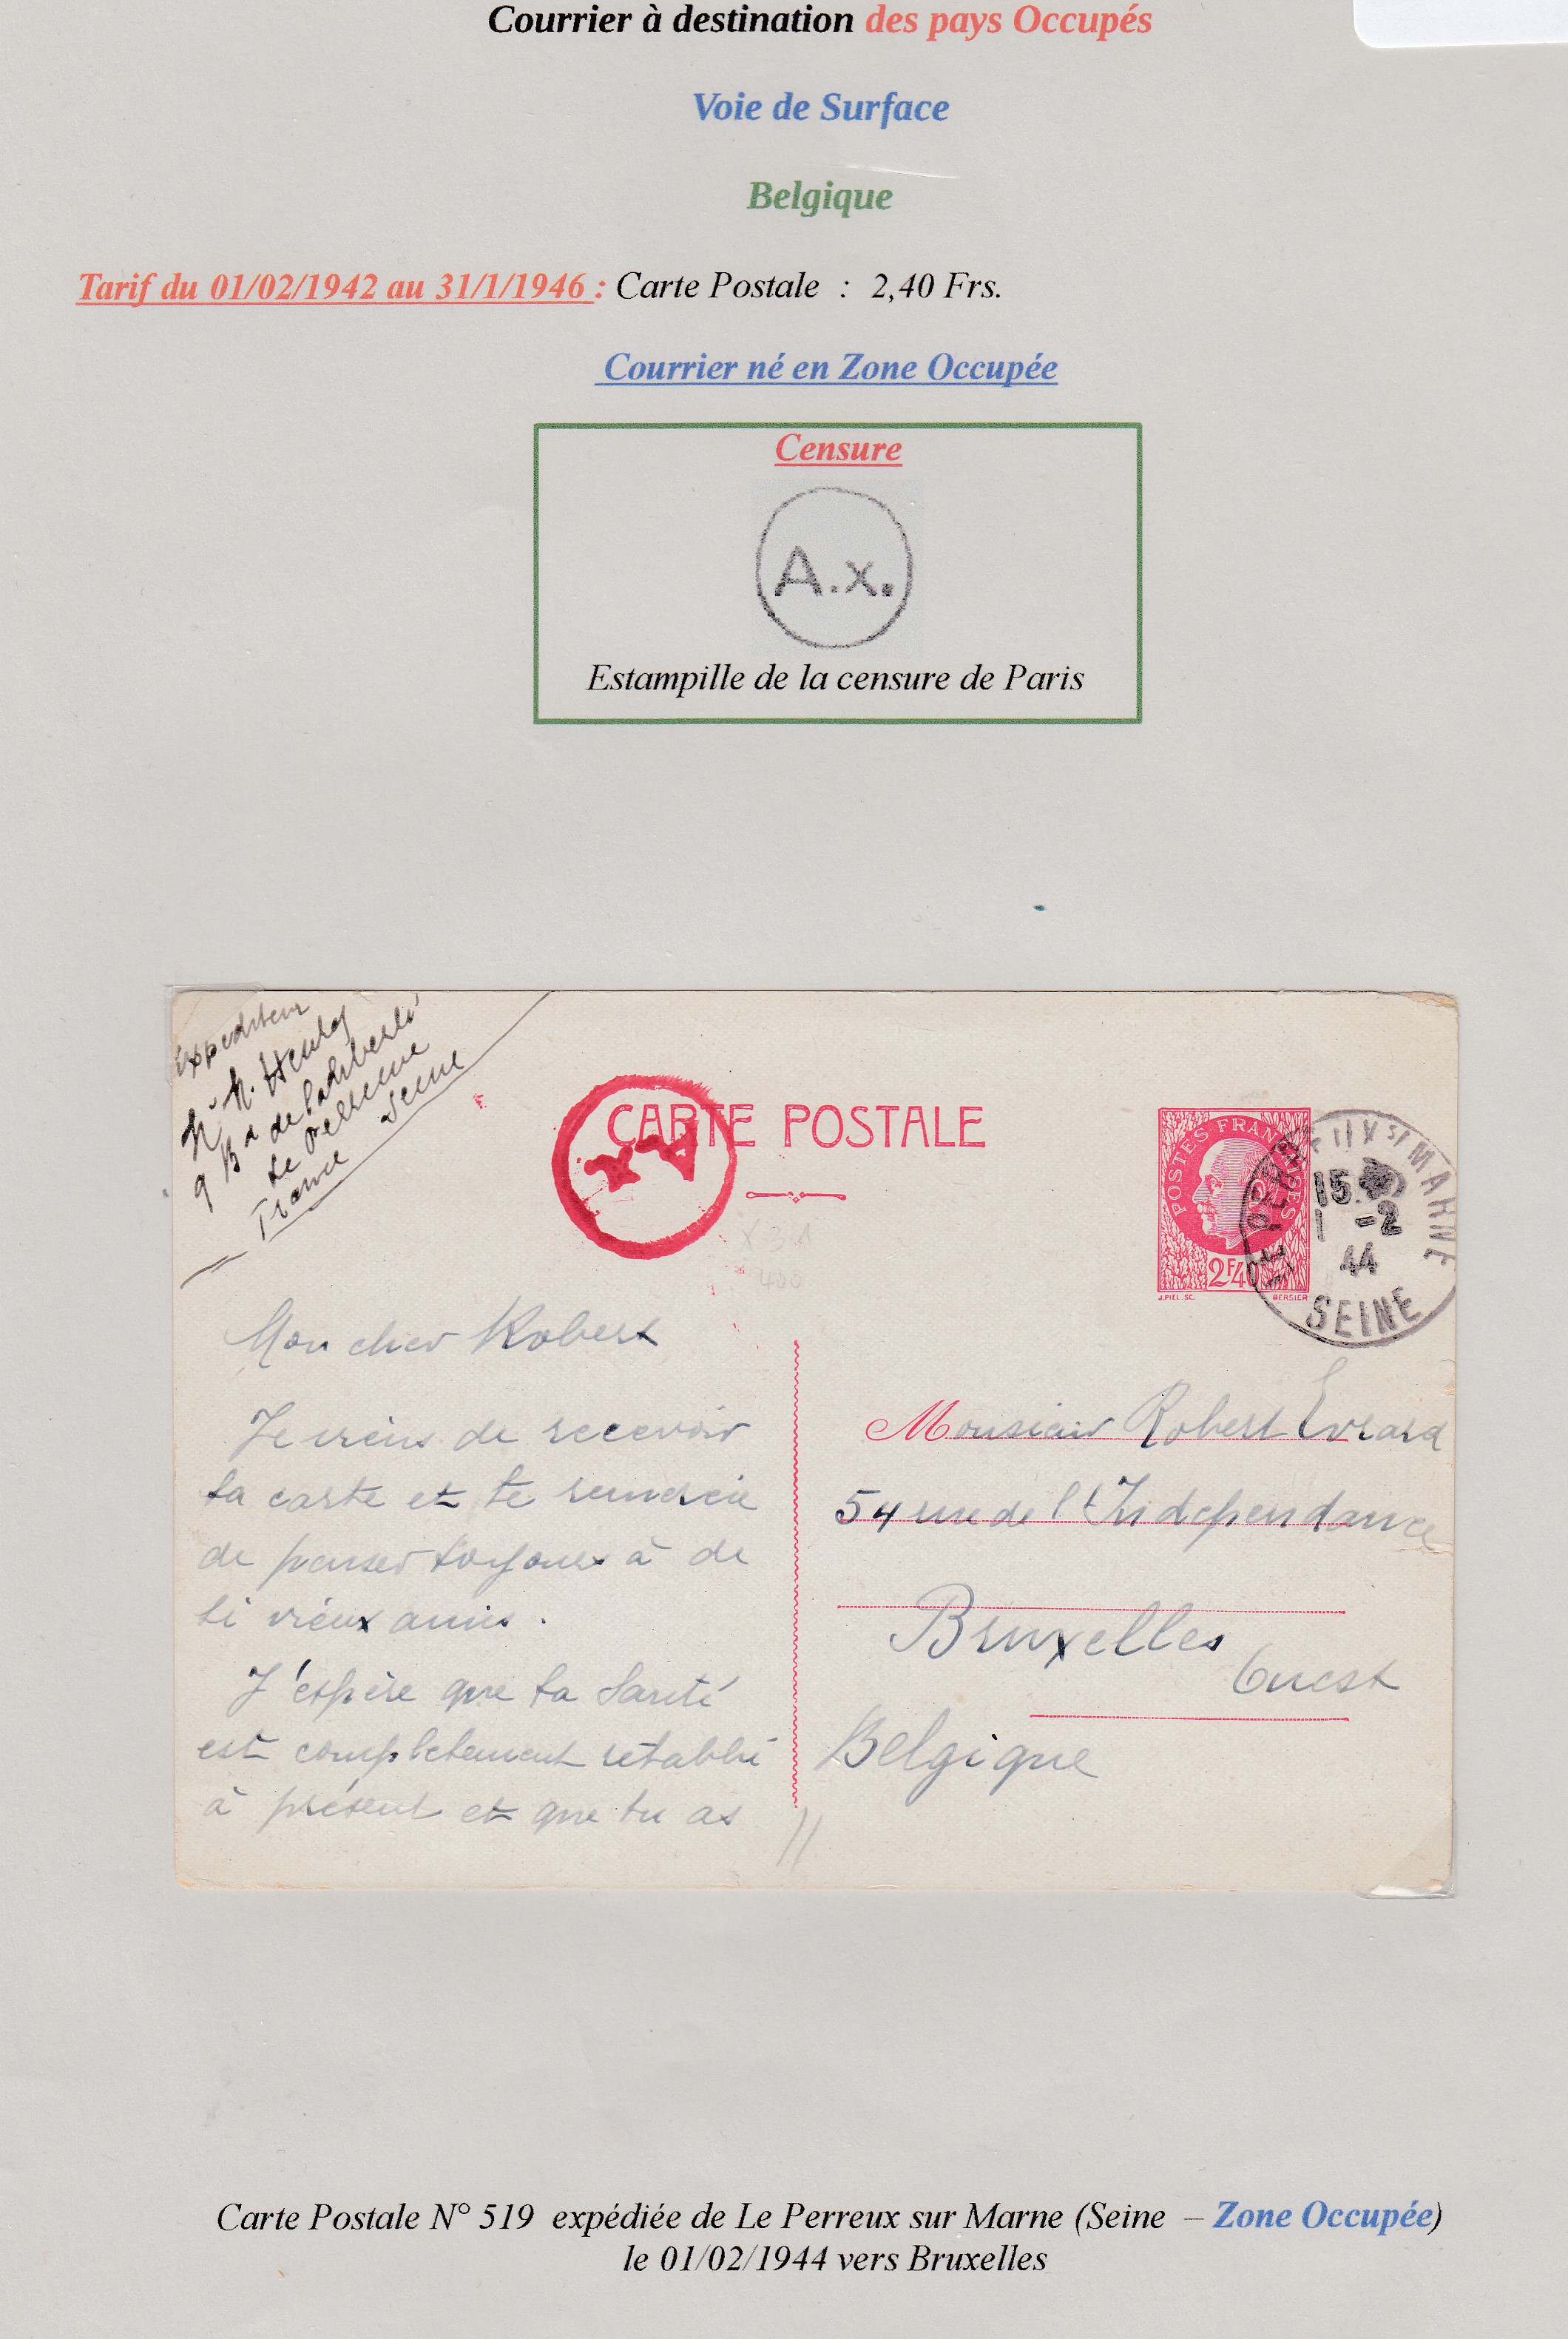 Courrier à destination des pays Occupés
Voie de Surface
Belgique
Tarif du 01/02/1942 au 31/1/1946 : Carte Postale : 2,40 Frs.
Courrier né en Zone Occupée
Censure
A.x.
Estampille de la censure de Paris
expediteur
9 Bd de la Liberté
Le Perreux
Seine
France
CARTE POSTALE
Ax
POSTES FRANÇAISES
2F40
J.PIEL.SC. BERSIER
LE PERREUX S/ MARNE
15
1 -2
44
SEINE
X31
400
Mon cher Robert
Je viens de recevoir
ta carte et te remercie
de penser toujours à de
si vieux amis.
J'espère que ta santé
est complètement rétabli
à présent et que tu as
Monsieur Robert Evrard
54 rue de l'Independance
Bruxelles
Ouest
Belgique
Carte Postale N° 519 expédiée de Le Perreux sur Marne (Seine – Zone Occupée)
le 01/02/1944 vers Bruxelles